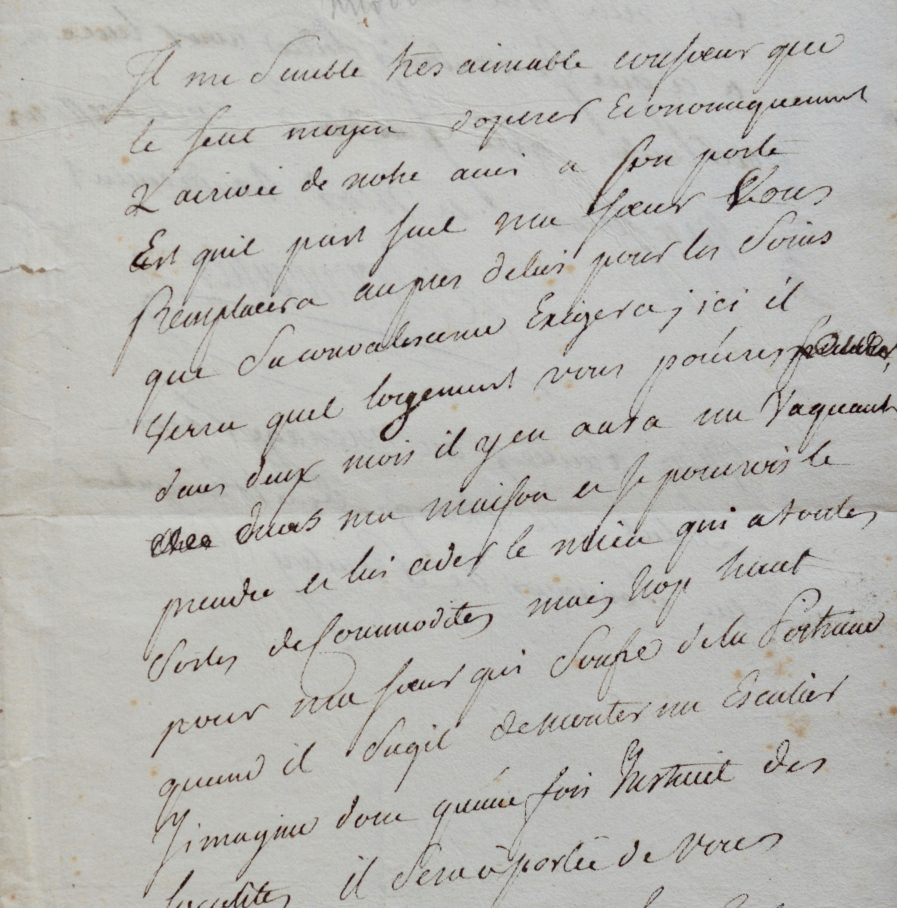 Il me Semble tres aimable consoeur que
le seul moyen doperer Economiquement
L'arrivée de notre ami a son poste
Est quil part seul ma soeur Vous
Remplacera aupres delui pour les Soins
que Saconvalesance Exigera; ici il
verra quel logement vous poures
dans deux mois il yen aura un Vaquant
dans ma maison et je pourois le
prendre et lui ceder le mien qui a toutes
Sortes de Commodites mais trop haut
pour ma soeur qui Soufre dela Poitrine
quand il Sagit demonter un Escalier
Jimagine donc quune fois Instruit des
localites il Sera à portée de vous